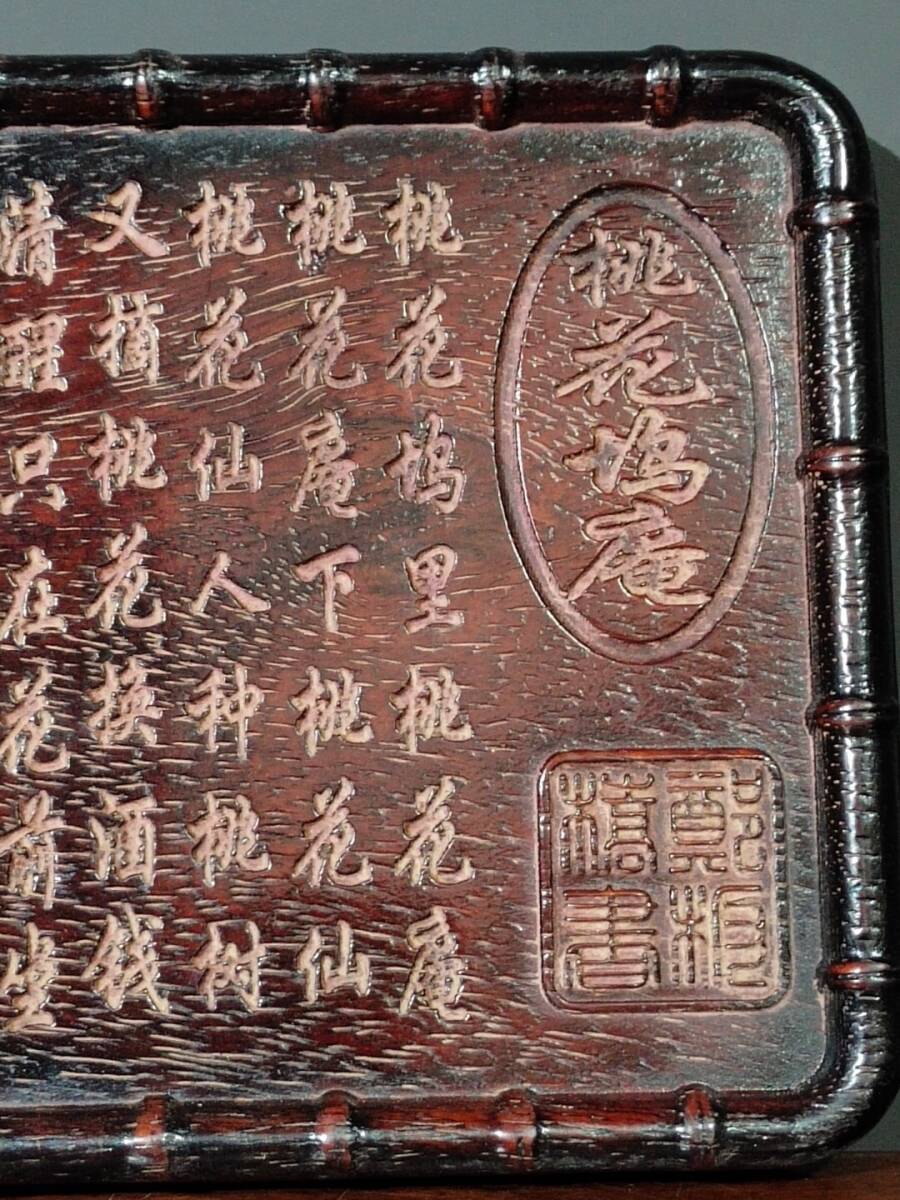 桃花坞庵
桃花坞里桃花庵
桃花庵下桃花仙
桃花仙人种桃树
又摘桃花换酒钱
清醒只在花前坐